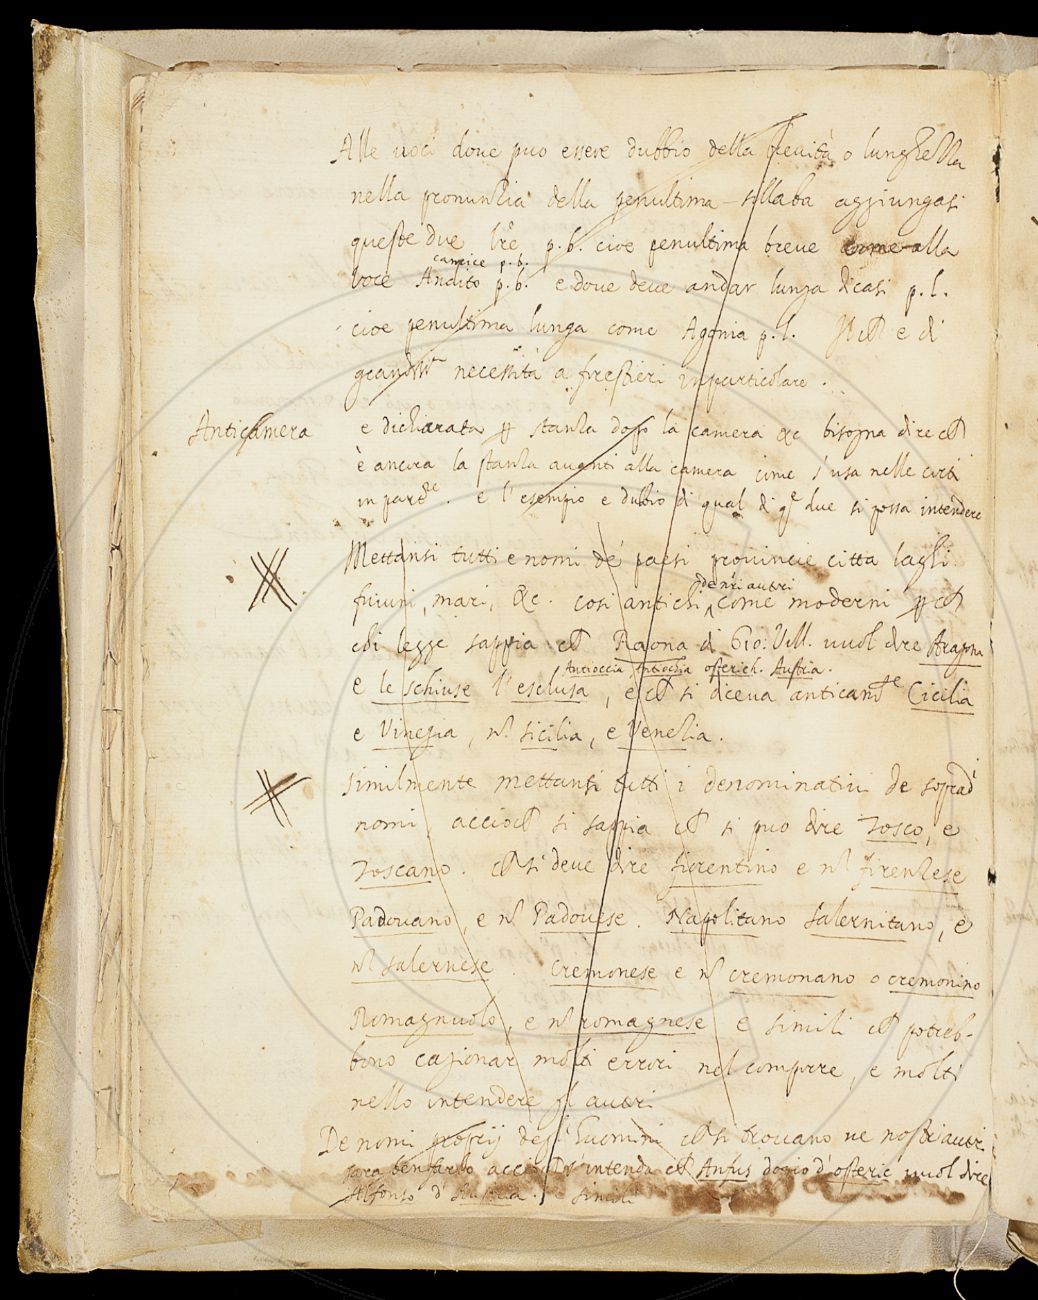 Alle voci dove puo essere dubbio della brevità o lunghella
nella pronunzia della penultima sillaba aggiungasi
queste due lre p.b. cioe penultima breve come alla
camice p.b.
voce Andito p.b. e dove deve andar lunga dicasi p.l.
cioe penultima lunga come Agonia p.l. e di
necessità a forestieri in particolare.
Anticamera
e dichiarata stanza dopo la camera &c bisogna dire
è ancora la stanza avanti alla camera come s'usa nelle corti
in parte. e l'esempio e dubbio di qual di qe due si possa intendere
Mettansi tutti e nomi de' paesi provincie citta laghi
fiumi, mari, &c. cosi antichi come moderni
de nri autri
chi legge sappia Raona di Gio: Vill. vuol dire Aragona
Antioccia Antiochia osterich. Austria.
e le schiuse l'esclusa, e si diceva anticamte Cicilia
e Vinegia, sicilia, e Venezia.
similmente mettansi tutti i denominativi de soprad
nomi, accio si sappia si puo dire Tosco, e
Toscano. si deve dire fiorentino e firenzese
Padovano, e Padovese. Napolitano salernitano, e
salernese. cremonese e cremonano o cremonino
Romagnuolo, e romagnese e simili potreb-
bono cagionar molti errori nel comporre, e molti
nello intendere gl autri
De nomi proprij degl' huomini si trovano ne nostri autri
sara ben farlo accio s'intenda Anfus dogio d'osteric vuol dire
Alfonso d'Austria. e simili